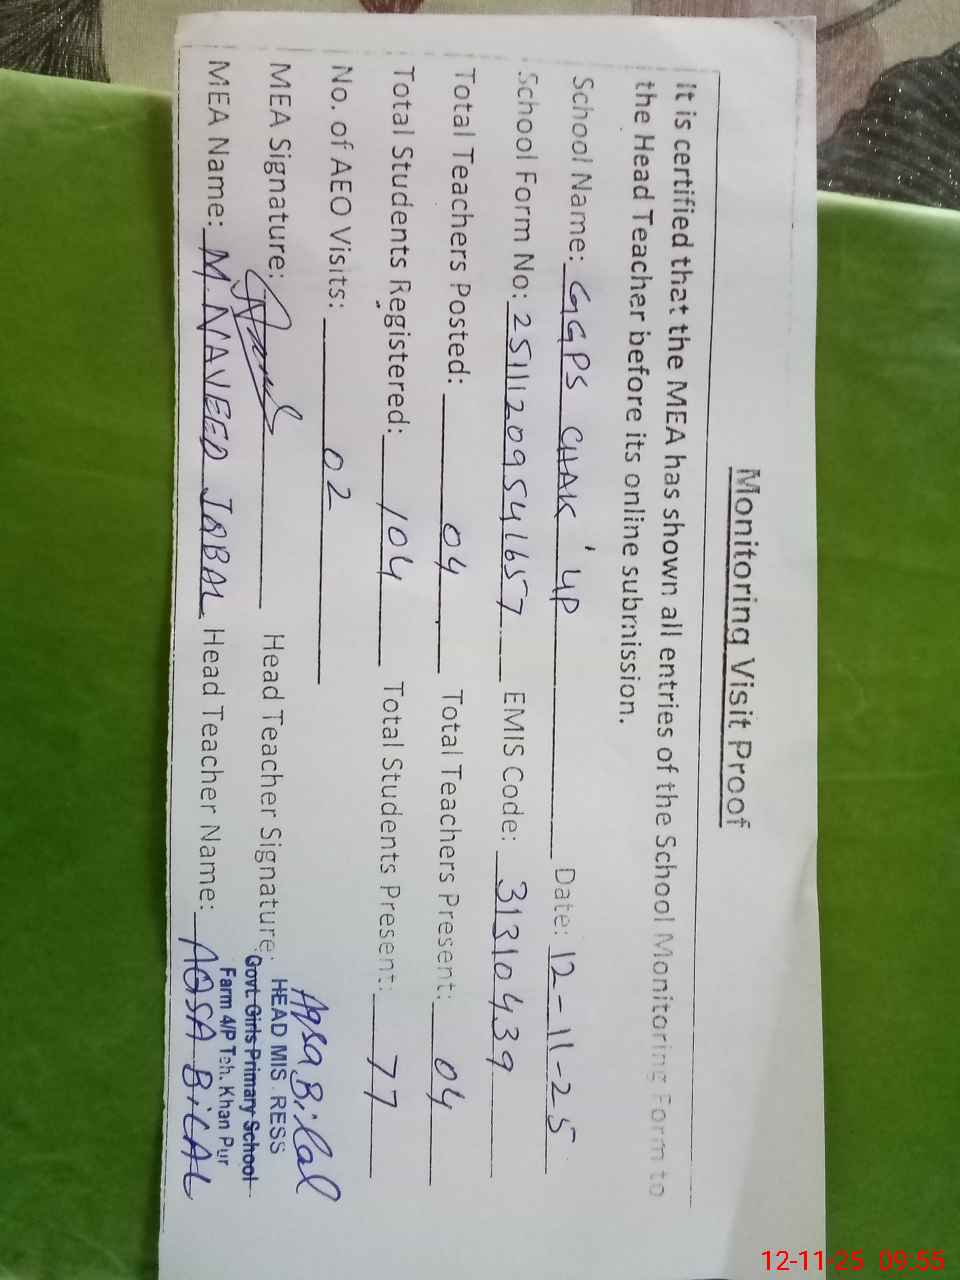 Monitoring Visit Proof
It is certified that the MEA has shown all entries of the School Monitoring Form to
the Head Teacher before its online submission.
School Name: GGPS CHAK 4P Date: 12-11-25
School Form No: 2511120954 1657 EMIS Code: 31310439
Total Teachers Posted: 04 Total Teachers Present: 04
Total Students Registered: 104 Total Students Present: 77
No. of AEO Visits: 02
MEA Signature: Head Teacher Signature: Aqsa Bilal
HEAD MIS RESS
Govt. Girls Primary School
Farm 4/P Teh. Khan Pur
MEA Name: M. NAVEED IQBAL Head Teacher Name: AQSA BILAL
12-11-25 09:55